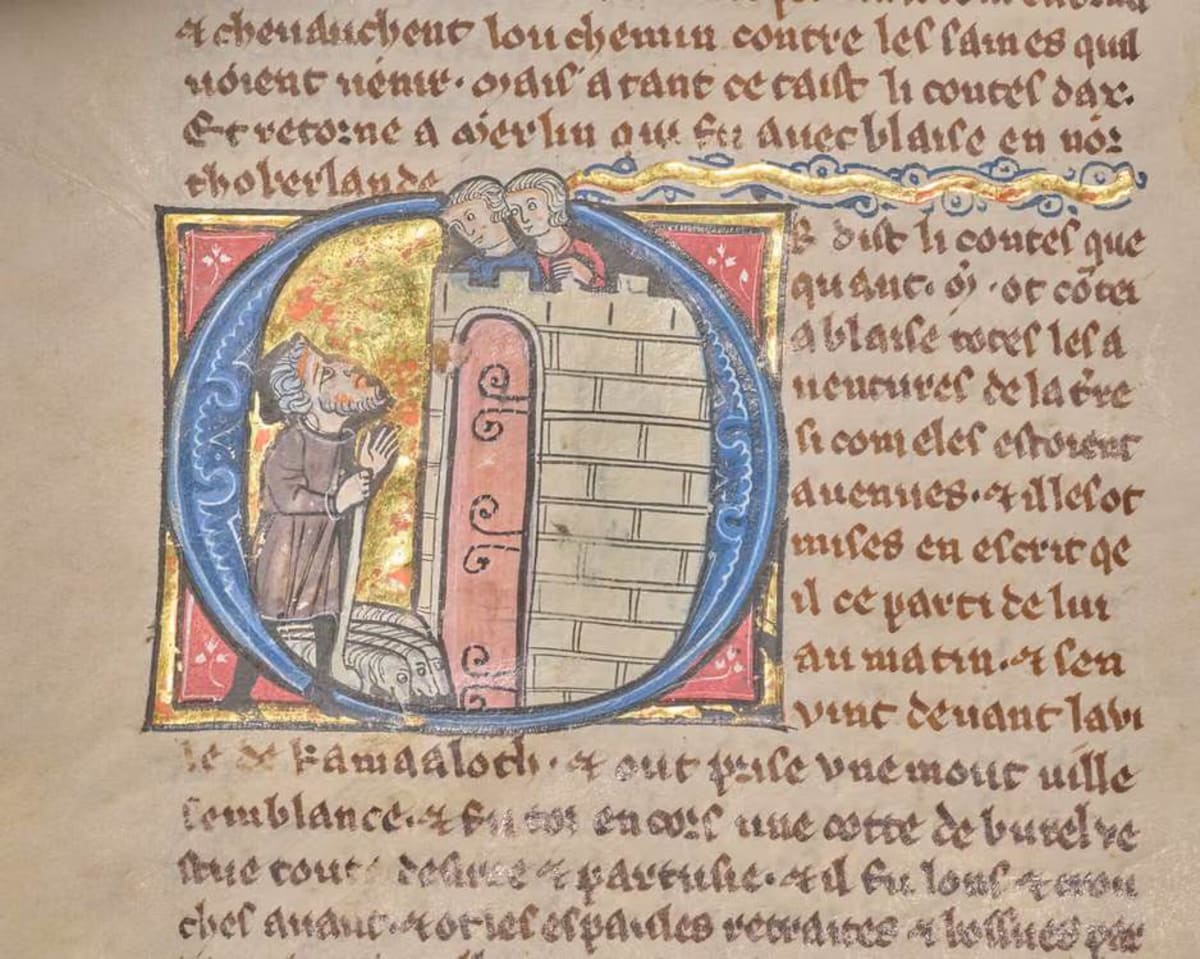 & cheuauchent lou chemin contre les saines quil
uoient uenir. Mais a tant ce taist li contes dax.
Et retorne a Merlin qui fu auec blaise en nor
thoberlande
R dist li contes que
quant. M. ot cōtei
a blaise totes les a
uentures de la tr̄e
si com eles estoient
auenues. & il les ot
mises en escrit qe
il ce parti de lui
au matin. & sen
uint deuant la vi
le de Kamaaloth. & out prise vne mout uille
semblance. & fu tot encors une cotte de burel ue
stue toute desiree & partusie. & il fu lons & crou
ches auant. & ot les espaules retraites & lossues par